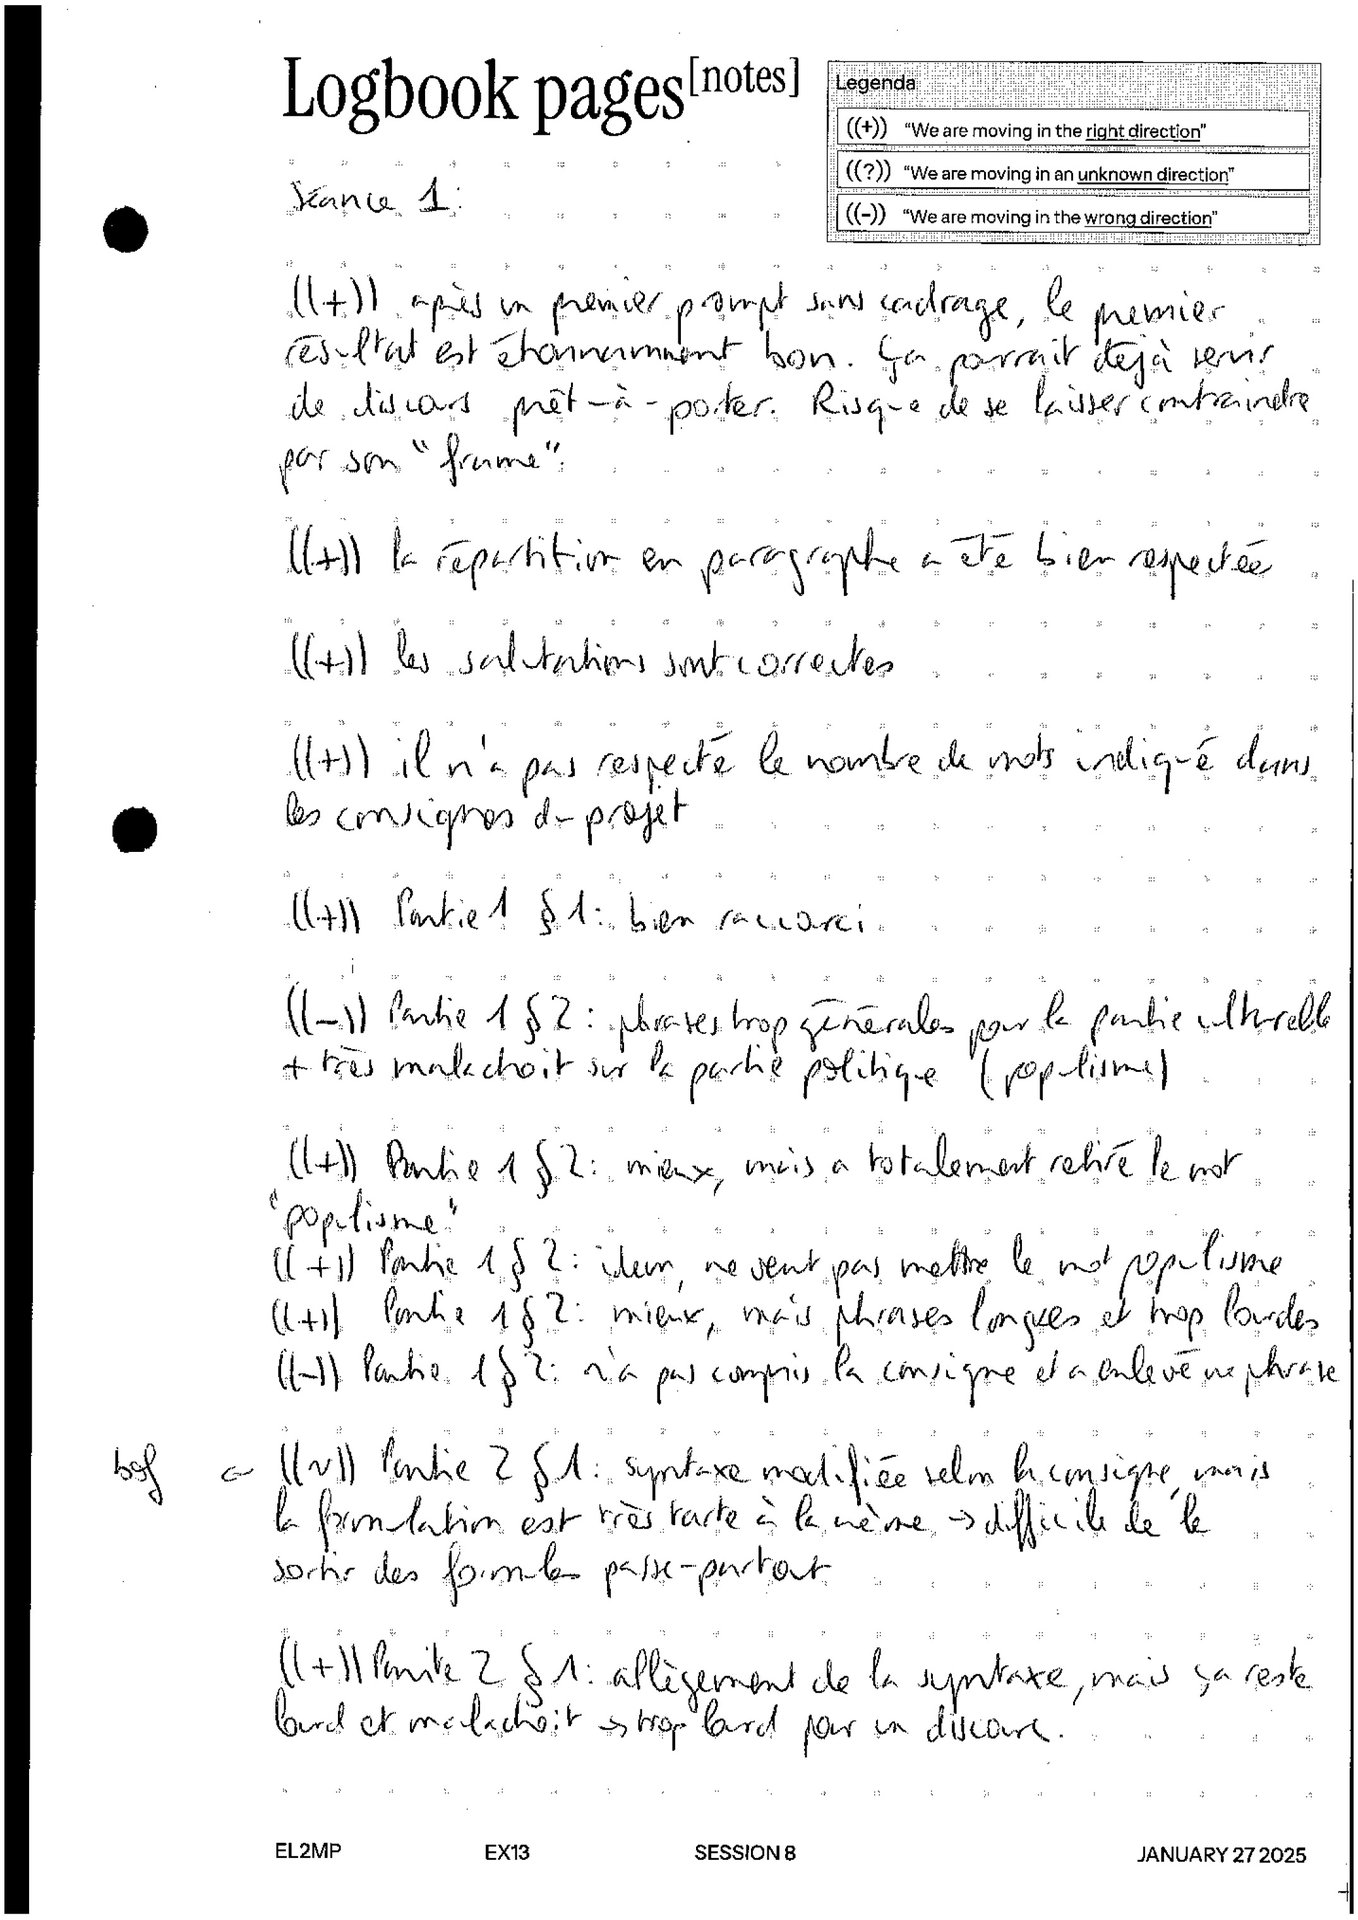 Logbook pages[notes]
Legenda
((+)) "We are moving in the right direction"
((?)) "We are moving in an unknown direction"
((-)) "We are moving in the wrong direction"
Séance 1:
((+)) après un premier prompt sans cadrage, le premier
résultat est étonnamment bon. Ça pourrait déjà servir
de discours prêt-à-porter. Risque de se laisser contraindre
par son "frame".
((+)) la répartition en paragraphe a été bien respectée
((+)) les salutations sont correctes
((+)) il n'a pas respecté le nombre de mots indiqué dans
les consignes du projet
((+)) Partie 1 §1: bien raccourci
((-)) Partie 1 §2: phrases trop générales pour la partie culturelle
+ très maladroit sur la partie politique (populisme)
((+)) Partie 1 §2: mieux, mais a totalement retiré le mot
"populisme"
((+)) Partie 1 §2: idem, ne veut pas mettre le mot populisme
((+)) Partie 1 §2: mieux, mais phrases longues et trop lourdes
((-)) Partie 1 §2: n'a pas compris la consigne et a enlevé une phrase
bof ← ((~)) Partie 2 §1: syntaxe modifiée selon la consigne, mais
la formulation est très tarte à la crème → difficile de le
sortir des formules passe-partout
((+)) Partie 2 §1: allègement de la syntaxe, mais ça reste
lourd et maladroit → trop lourd pour un discours.
EL2MP EX13 SESSION 8 JANUARY 27 2025